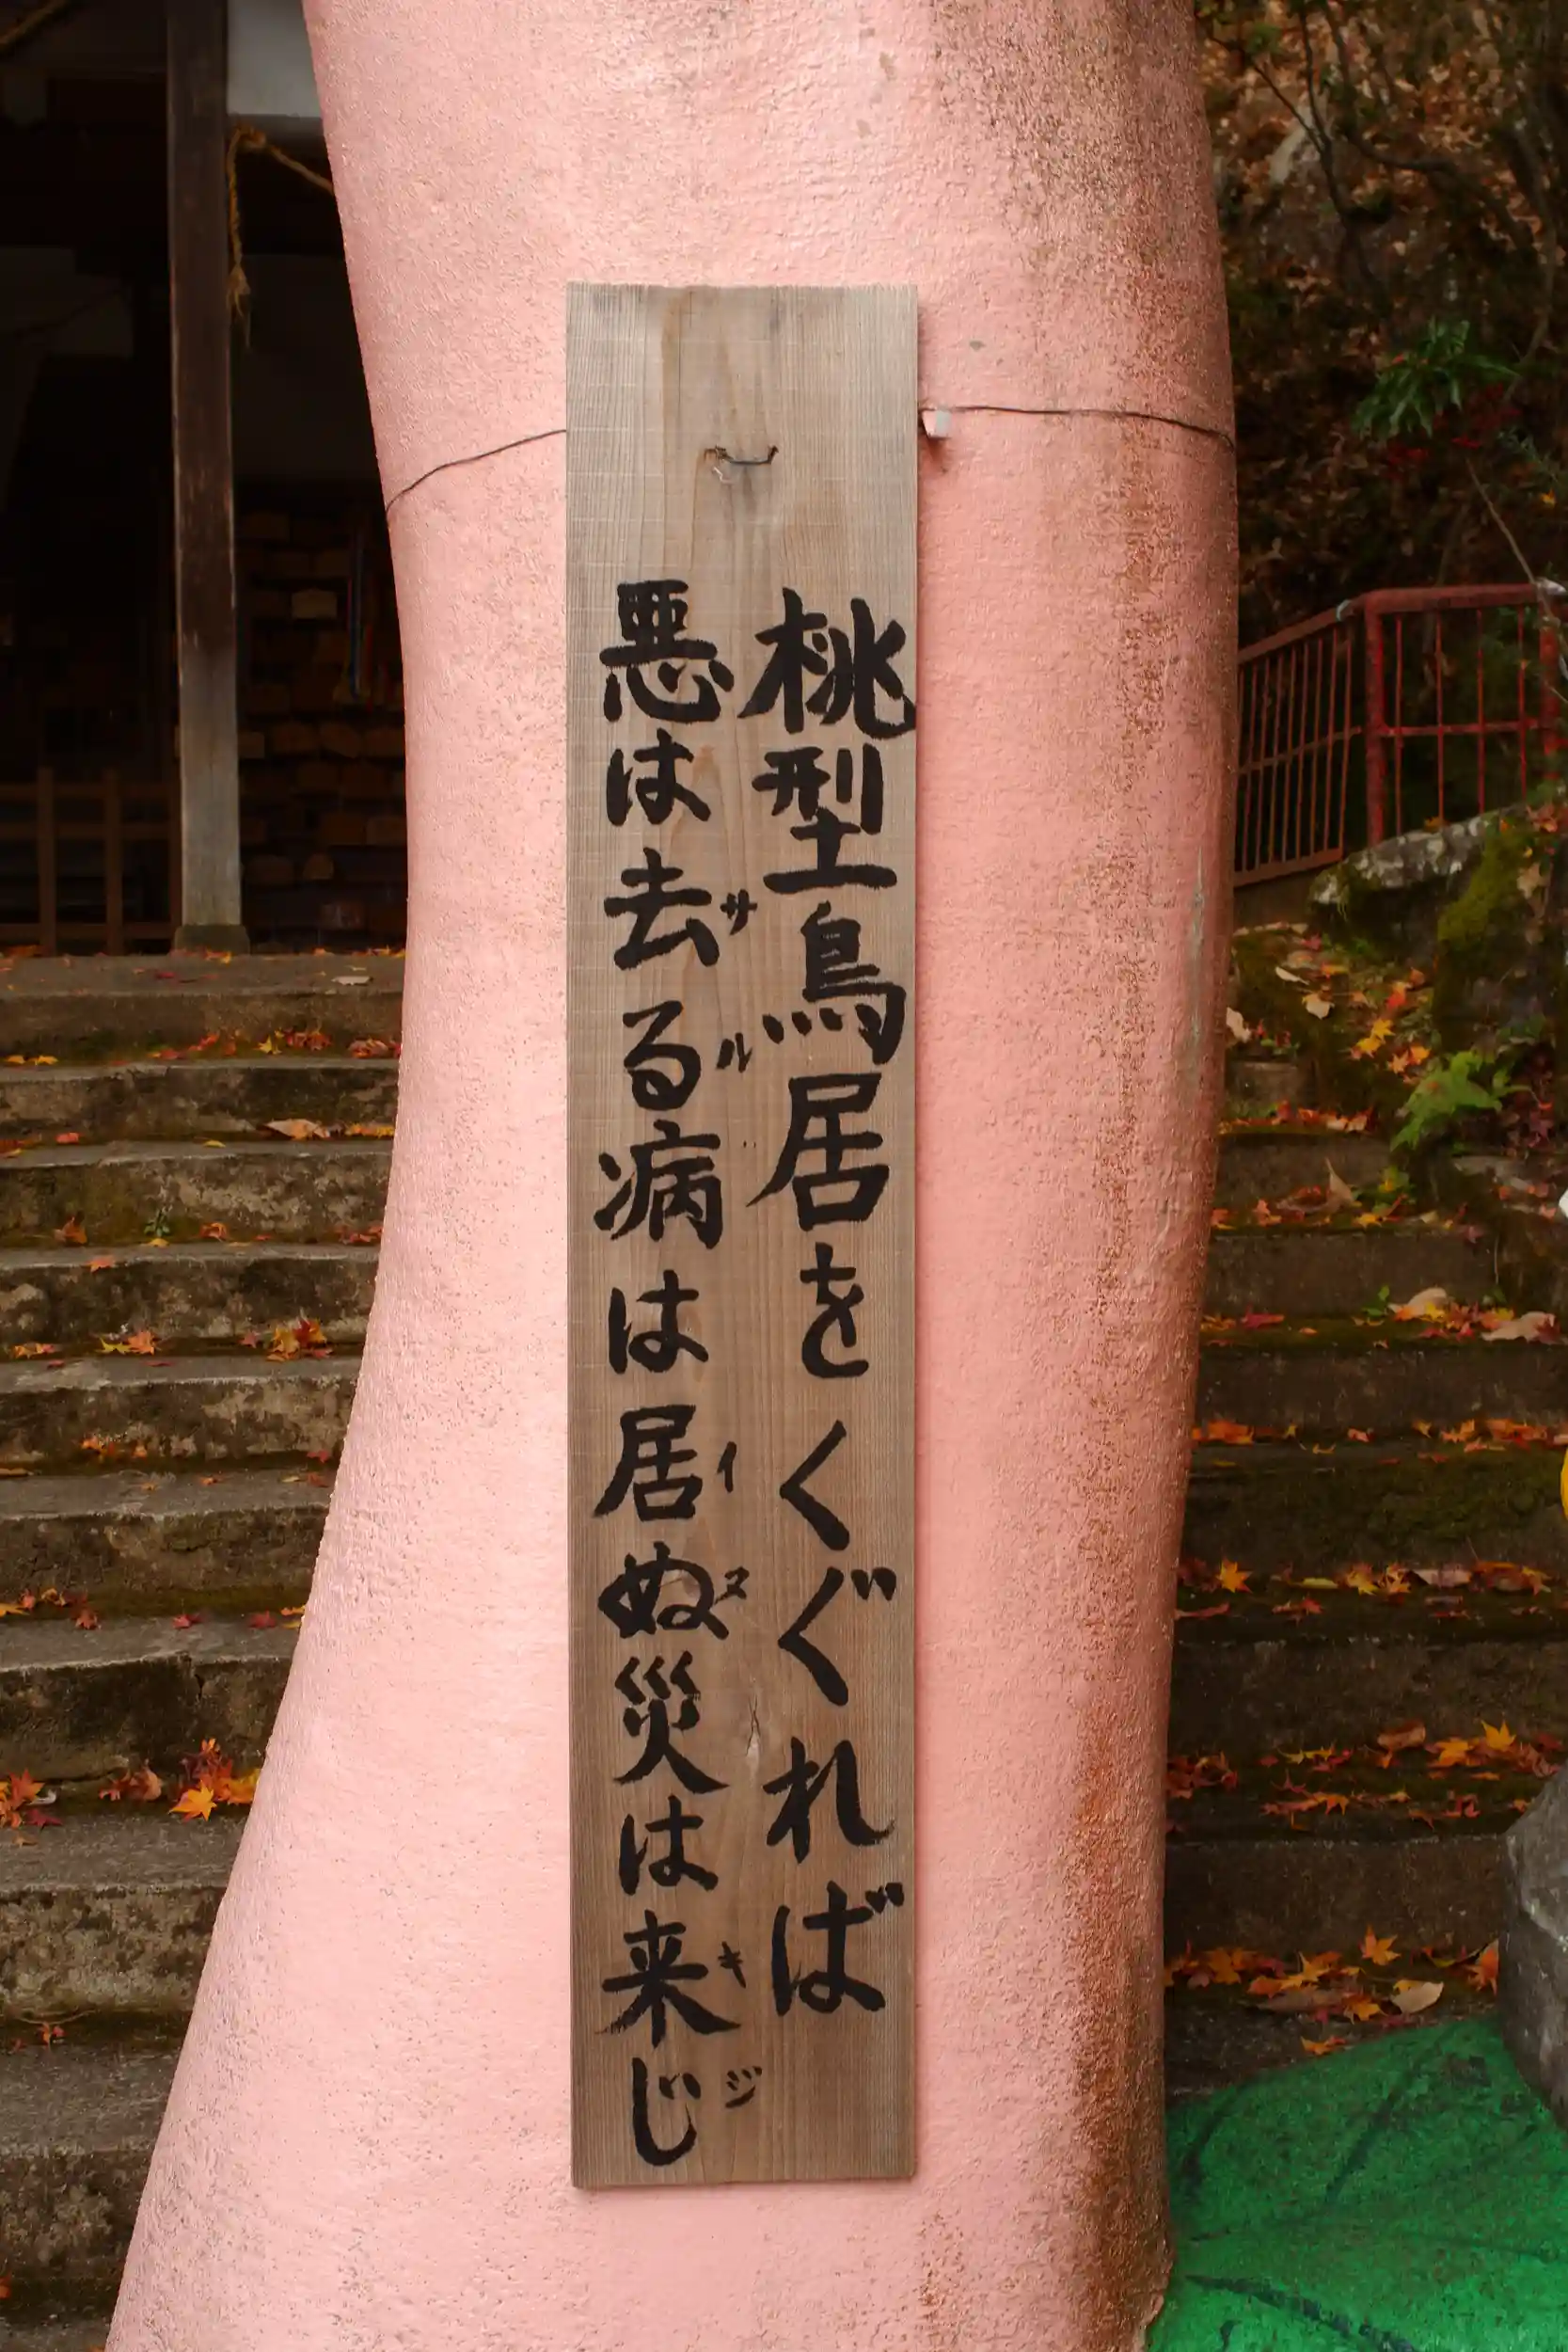 桃型鳥居をくぐれば
悪は去る病は居ぬ災は来じ
サル
イヌ
キジ